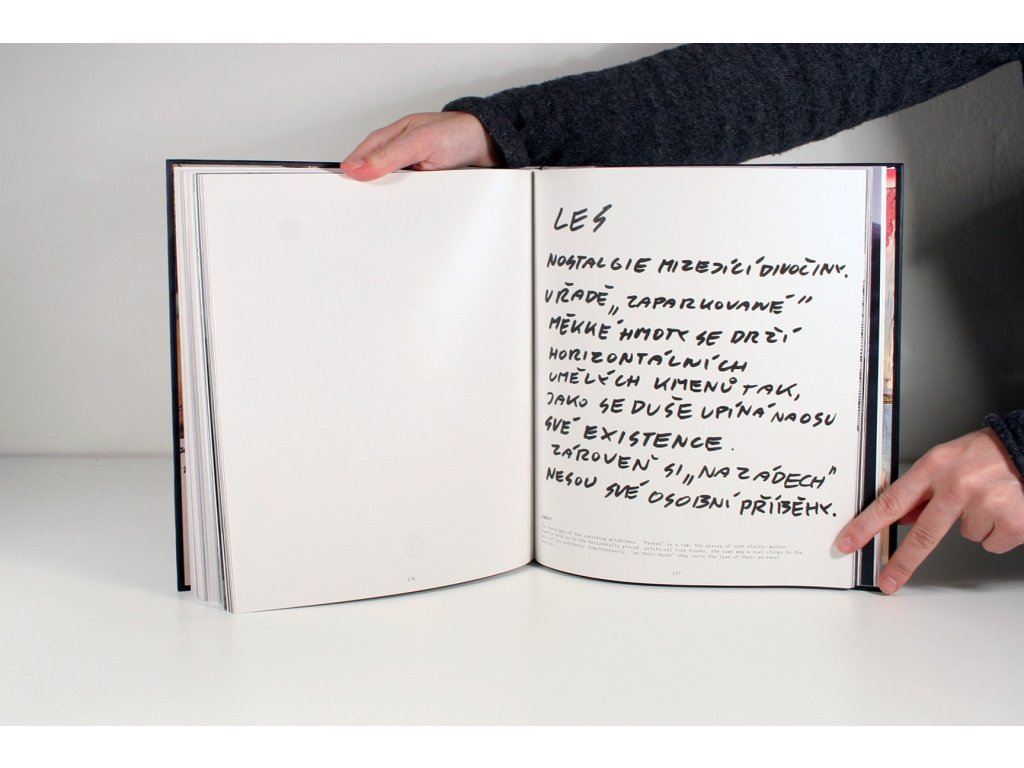 LES
NOSTALGIE MIZEJÍCÍ DIVOČINY.
V ŘADĚ „ZAPARKOVANÉ"
MĚKKÉ HMOTY SE DRŽÍ
HORIZONTÁLNÍCH
UMĚLÝCH KMENŮ TAK,
JAKO SE DUŠE UPÍNÁ NA OSU
SVÉ EXISTENCE.
ZÁROVEŇ SI „NA ZÁDECH"
NESOU SVÉ OSOBNÍ PŘÍBĚHY.
FOREST
The nostalgia of the vanishing wilderness. "Parked" in a row, the pieces of soft plastic matter
hold on to the horizontally placed, artificial tree trunks, the same way a soul clings to the
axis of its existence. Simultaneously, "on their backs" they carry the load of their personal
176
177